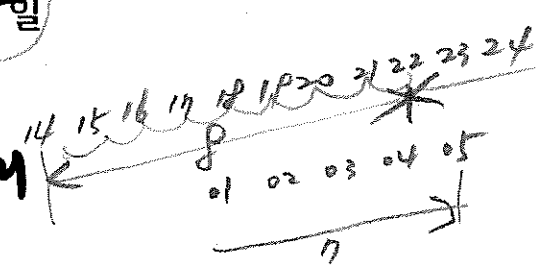 일
14 15 16 17 18 19 20 21 22 23 24
8
01 02 03 04 05
7